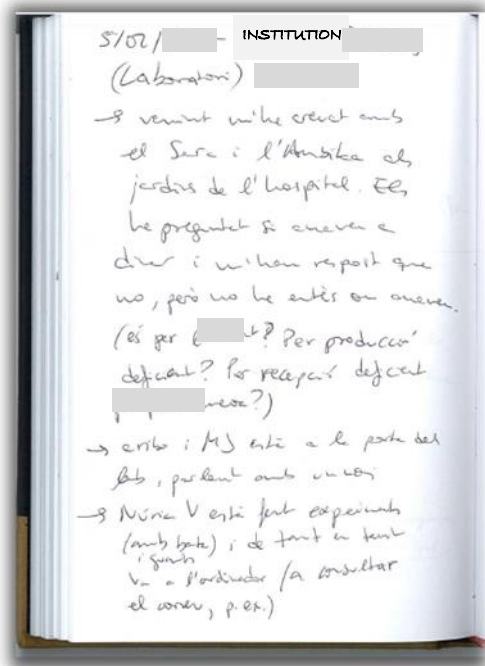 5/02/ - INSTITUTION
(Laboratori)
→ venint m'he creuat amb
el Sara i l'Ambika als
jardins de l'hospital. Els
he preguntat si anaven a
dinar i m'han respost que
no, però no he entès on anaven.
(és per t? Per producció
deficient? Per recepció deficient
meva?)
→ arribo i MJ està a la porta del
lab, parlant amb un noi
→ Núria V està fent experiments
(amb bata) i de tant en tant
i guants
va a l'ordinador (a consultar
el correu, p.ex.)